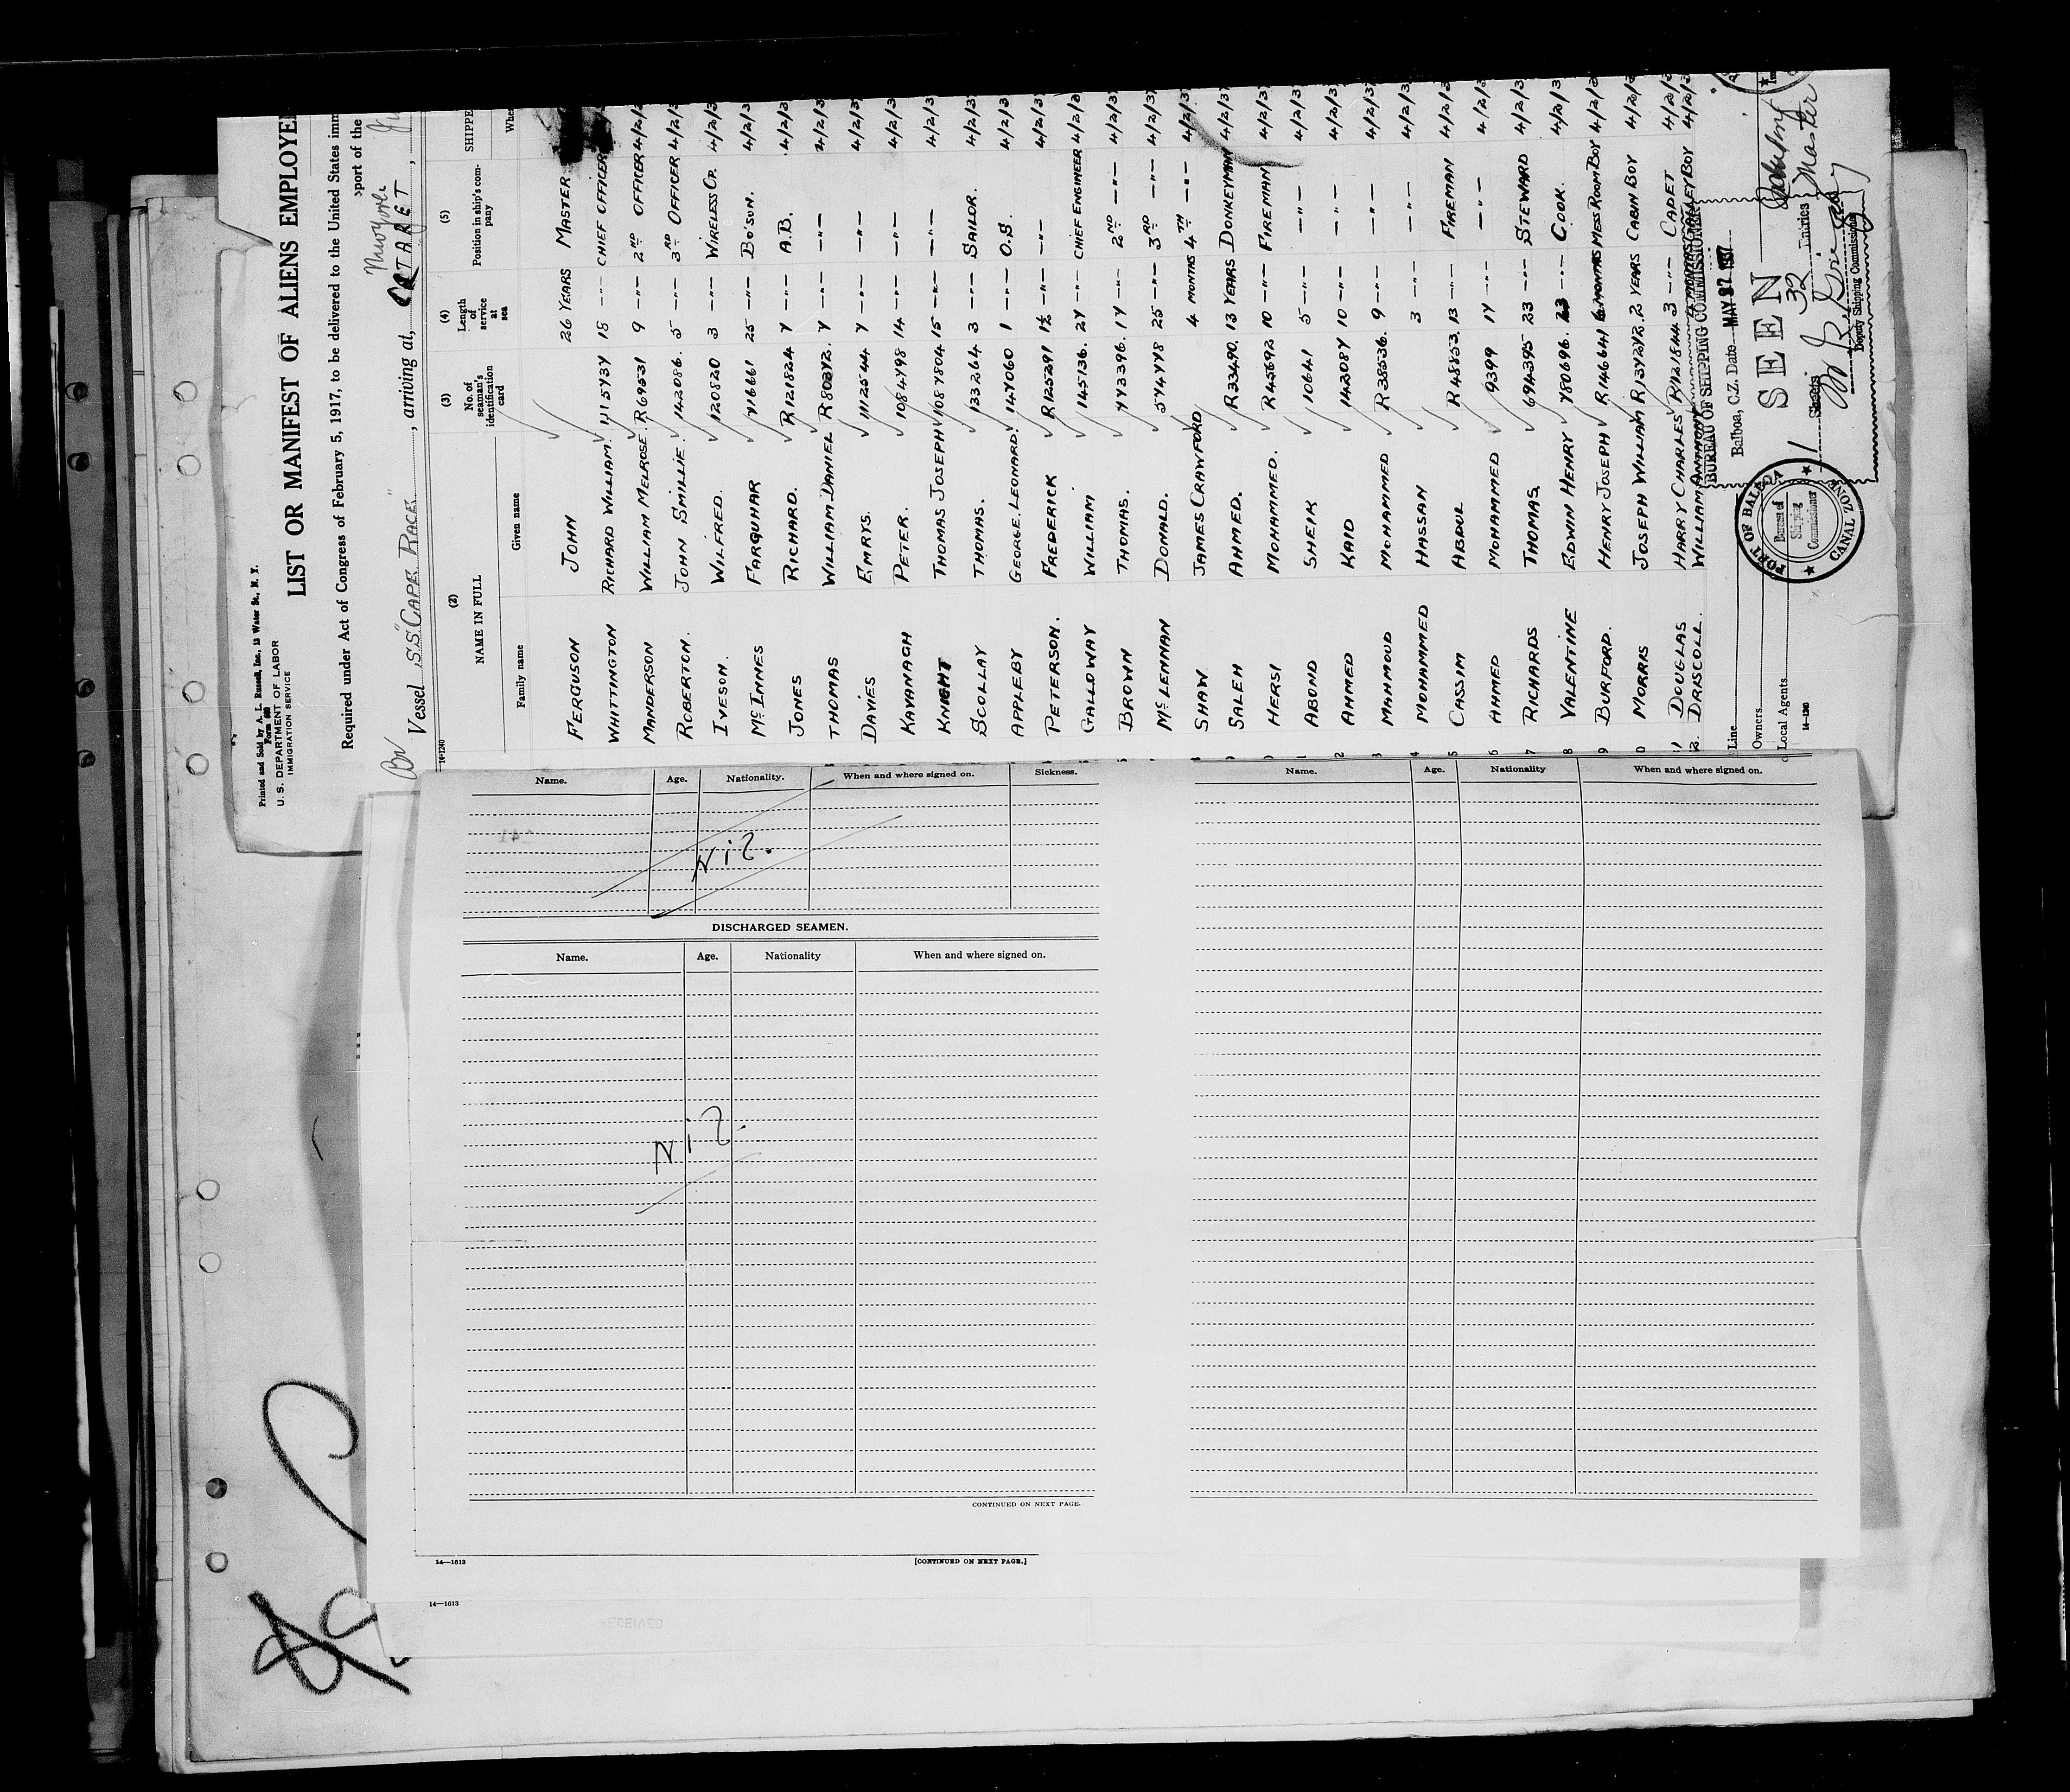 Printed and Sold by A. L. Russell, Inc., 13 Water St., N. Y.
U. S. DEPARTMENT OF LABOR
IMMIGRATION SERVICE
LIST OR MANIFEST OF ALIENS EMPLOYE
Required under Act of Congress of February 5, 1917, to be delivered to the United States imm
port of the
Br Vessel S.S. "CAPE RACE", arriving at, New York
14-1240
(2) (3) (4) (5) SHIPPE
NAME IN FULL No. of seaman's identification card Length of service at sea Position in ship's company Whe
Family name Given name
FERGUSON JOHN 26 YEARS MASTER
WHITTINGTON RICHARD WILLIAM. 1115737 18 -"- CHIEF OFFICER 4/2/3
MANDERSON WILLIAM MELROSE. R69531 9 -"- 2ND OFFICER 4/2/3
ROBERTON. JOHN SMILLIE. 142086. 5 -"- 3RD OFFICER 4/2/3
IVESON. WILFRED. 120820 3 -"- WIRELESS OP. 4/2/3
McINNES FARQUHAR 716661 25 -"- BO'SUN. 4/2/3
JONES RICHARD. R121824 7 -"- A.B. 4/2/3
THOMAS WILLIAM DANIEL R80372. 7 -"- -"- 4/2/3
DAVIES EMRYS. 1112544 7 -"- -"- 4/2/3
KAVANAGH PETER. 1084798 14 -"- -"- 4/2/3
KNIGHT THOMAS JOSEPH 1087804 15 -"- -"- 4/2/3
SCOLLAY THOMAS. 133264 3 -"- SAILOR. 4/2/37
APPLEBY GEORGE LEONARD. 147060 1 -"- O.S. 4/2/3
PETERSON. FREDERICK R125291 1½ -"- -"- 4/2/37
GALLOWAY WILLIAM 145136. 27 -"- CHIEF ENGINEER 4/2/3
BROWN THOMAS. 773396. 17 -"- 2ND -"- 4/2/37
McLENNAN DONALD. 574778 25 -"- 3RD -"- 4/2/37
SHAW JAMES CRAWFORD 4 MONTHS 4TH -"- 4/2/37
SALEH AHMED. R33490. 13 YEARS DONKEYMAN 4/2/37
HERSI MOHAMMED. R45692 10 -"- FIREMAN 4/2/37
ABOND SHEIK 10641 5 -"- -"- 4/2/37
AHMED KAID 142087 10 -"- -"- 4/2/37
MAHMOUD MOHAMMED R38536. 9 -"- -"- 4/2/37
MOHAMMED HASSAN 3 -"- -"- 4/2/3
CASSIM ABDUL R48853. 13 -"- FIREMAN 4/2/3
AHMED MOHAMMED 9399 17 -"- -"- 4/2/3
RICHARDS THOMAS. 694395 23 -"- STEWARD 4/2/3
VALENTINE EDWIN HENRY 780696. 23 -"- COOK. 4/2/3
BURFORD. HENRY JOSEPH R146641 6 MONTHS MESS ROOM BOY 4/2/3
MORRIS JOSEPH WILLIAM R137272. 2 YEARS CABIN BOY 4/2/3
DOUGLAS HARRY CHARLES R121844 3 -"- CADET 4/2/3
DRISCOLL. WILLIAM ANTHONY GALLEY BOY 4/2/3
Line
Owners
Local Agents
14-1240
PORT OF BALBOA
Bureau of Shipping Commissioner
CANAL ZONE
BUREAU OF SHIPPING COMMISSIONER
Balboa, C.Z. Date MAY 27 1937
SEEN
1 Sheets 32 Entries
Deputy Shipping Commissioner
Master
Name. Age. Nationality. When and where signed on. Sickness.
Nil.
DISCHARGED SEAMEN.
Name. Age. Nationality When and where signed on.
Nil.
CONTINUED ON NEXT PAGE.
Name. Age. Nationality When and where signed on.
14—1613 [CONTINUED ON NEXT PAGE.]
14—1613
RECEIVED